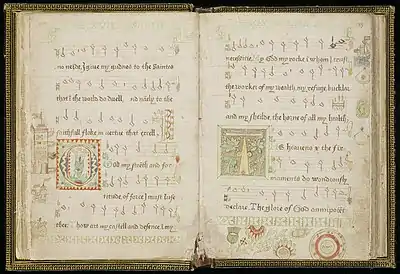 no tride, I gave my gudnes to the Saintes
that I the warld do dwell, and nixly to the
faithfull floke in vertue that excell.
O God my strenth and for
titude, of force I must lufe
thee. Thow art my castell and defence, in my
necessitie. My God my rocke in whom I traist
the worker of my wealth, my refuge, buckler,
and my sheilde, the horne of all my health.
The heavens & the fir
mament do wondrously
declare, The glore of God omnipotent